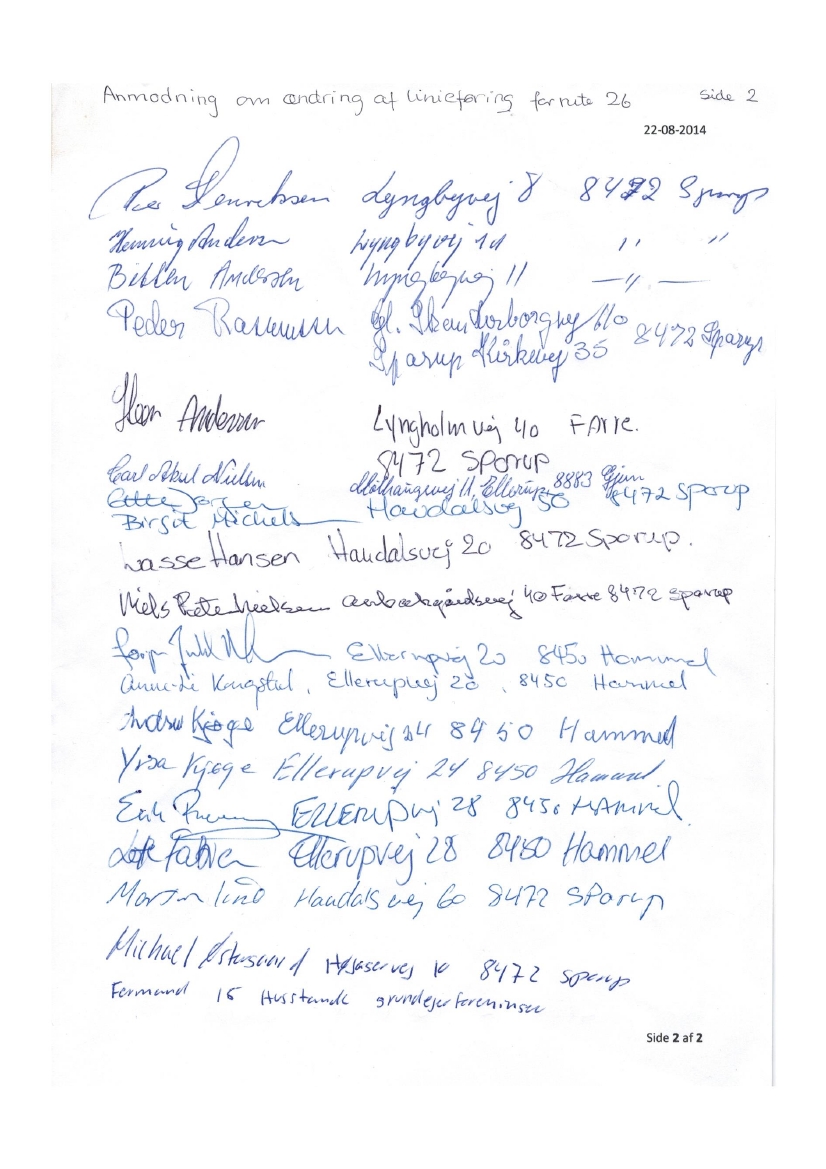 Anmodning om ændring af linieføring for rute 26 Side 2
22-08-2014
Henriksen Lyngbyvej 8 8472 Sporup
Henning Andersen Lyngbyvej 11 " "
Bitten Andersen Lyngbyvej 11 — " —
Peder Rasmussen Gl. 110 8472 Sporup
Sporup Kirkevej 35
Andersen Lyngholmvej 40 FArre.
8472 SPorup
Carl Aksel Nielsen 11, Ellerup 8883 Gjern
Haudalsvej 50 8472 SPorup
Birgit Michels
Lasse Hansen Haudalsvej 20 8472 Sporup.
Niels Peter Nielsen 40 Farre 8472 Sporup
Ellerupvej 20 8450 Hammel
Ellerupvej 20, 8450 Hammel
Kjøge Ellerupvej 24 8450 Hammel
Yrsa Kjøge Ellerupvej 24 8450 Hammel
Erik Ellerupvej 28 8450 HAmmel
Ellerupvej 28 8450 Hammel
Morten Lind Haudalsvej 60 8472 SPorup
Michael Østergaard 10 8472 Sporup
Formand 16 Husstande grundejerforeningen
Side 2 af 2